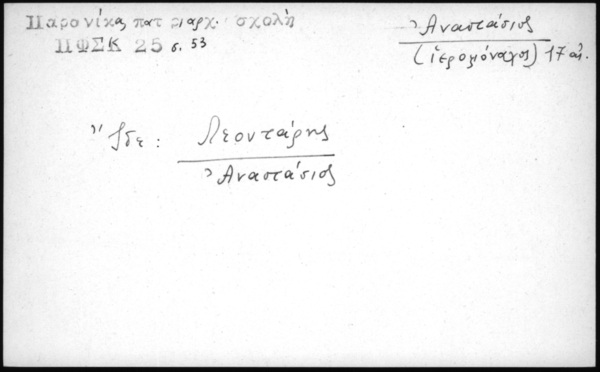 Παρανίκα, πατριαρχ. σχολή
ΠΦΣΚ 25 σ. 53
Ἀναστάσιος
(ἱερομόναχος) 17 αἰ.
Ἴδε: Λεοντάρης
Ἀναστάσιος